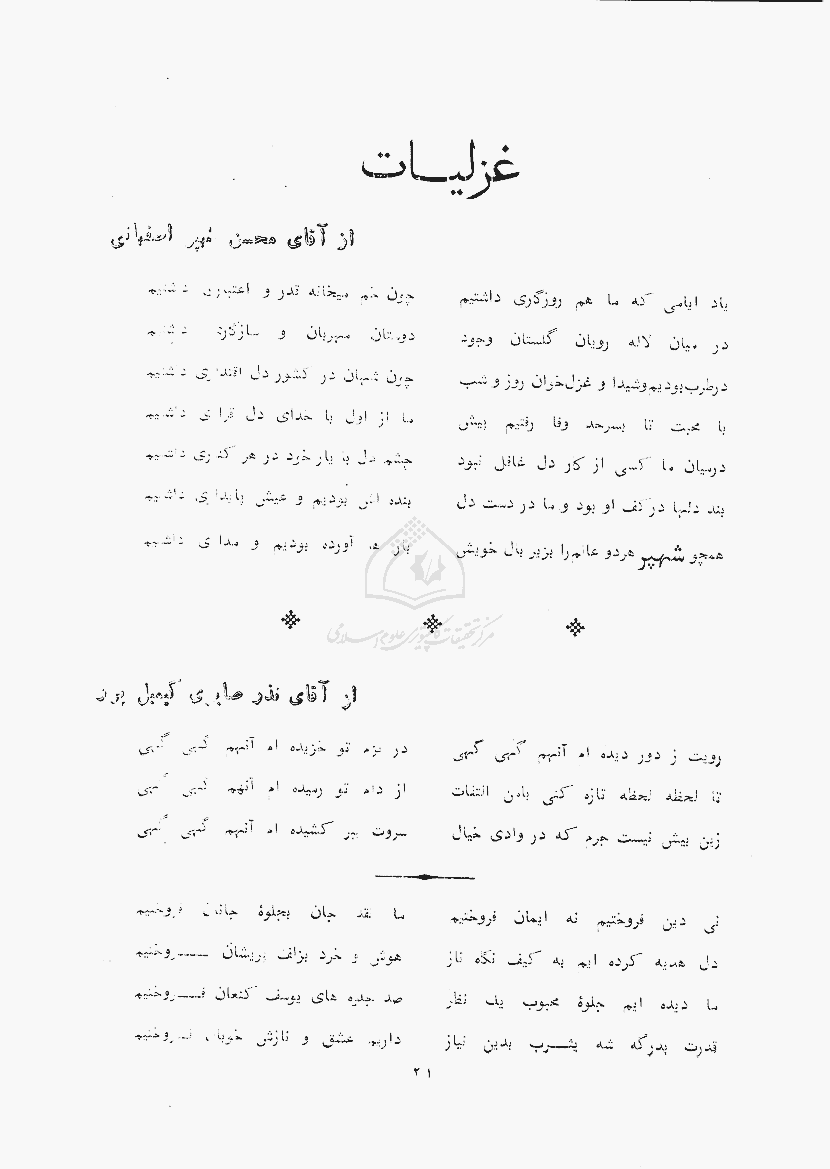 غزلیـات
از آقای محسن شهپر اصفهانی
یاد ایامی که ما هم روزگاری داشتیم چون خم میخانه قدر و اعتباری داشتیم
در میان لاله رویان گلستان وجود دوستان مهربان و سازگاری داشتیم
درطرب‌بودیم‌وشیدا و غزل‌خوان روز و شب چون شهان در کشور دل اقتداری داشتیم
با محبت تا بسرحد وفا رفتیم پیش ما از اول با خدای دل قراری داشتیم
درمیان ما کسی از کار دل غافل نبود چشم دل با یار خود در هر کناری داشتیم
بند دلها در کف او بود و ما در دست دل بنده اش بودیم و عیش پایداری داشتیم
همچو شهپر هردو عالم‌را بزیر بال خویش آورده بودیم و داشتیم
مرکز تحقیقات کامپیوتری علوم اسلامی
از آقای نذر صابری کیمبل پور
رویت ز دور دیده ام آنهم گهی گهی در بزم تو خزیده ام آنهم گهی گهی
تا لحظه لحظه تازه کنی بامن التفات از دام تو رمیده ام آنهم گهی گهی
زین بیش نیست جرم که در وادی خیال سروت ببر کشیده ام آنهم گهی گهی
نی دین فروختیم نه ایمان فروختیم ما نقد جان بجلوهٔ جانان فروختیم
دل هدیه کرده ایم به کیف نگاه ناز هوش و خرد بزلف پریشان فروختیم
ما دیده ایم جلوهٔ محبوب یک نظر صد جلوه های یوسف کنعان فـروختیم
قدرت بدرگه شه یثـرب بدین نیاز داریم عشق و نازش خوبان فـروختیم
۲۱